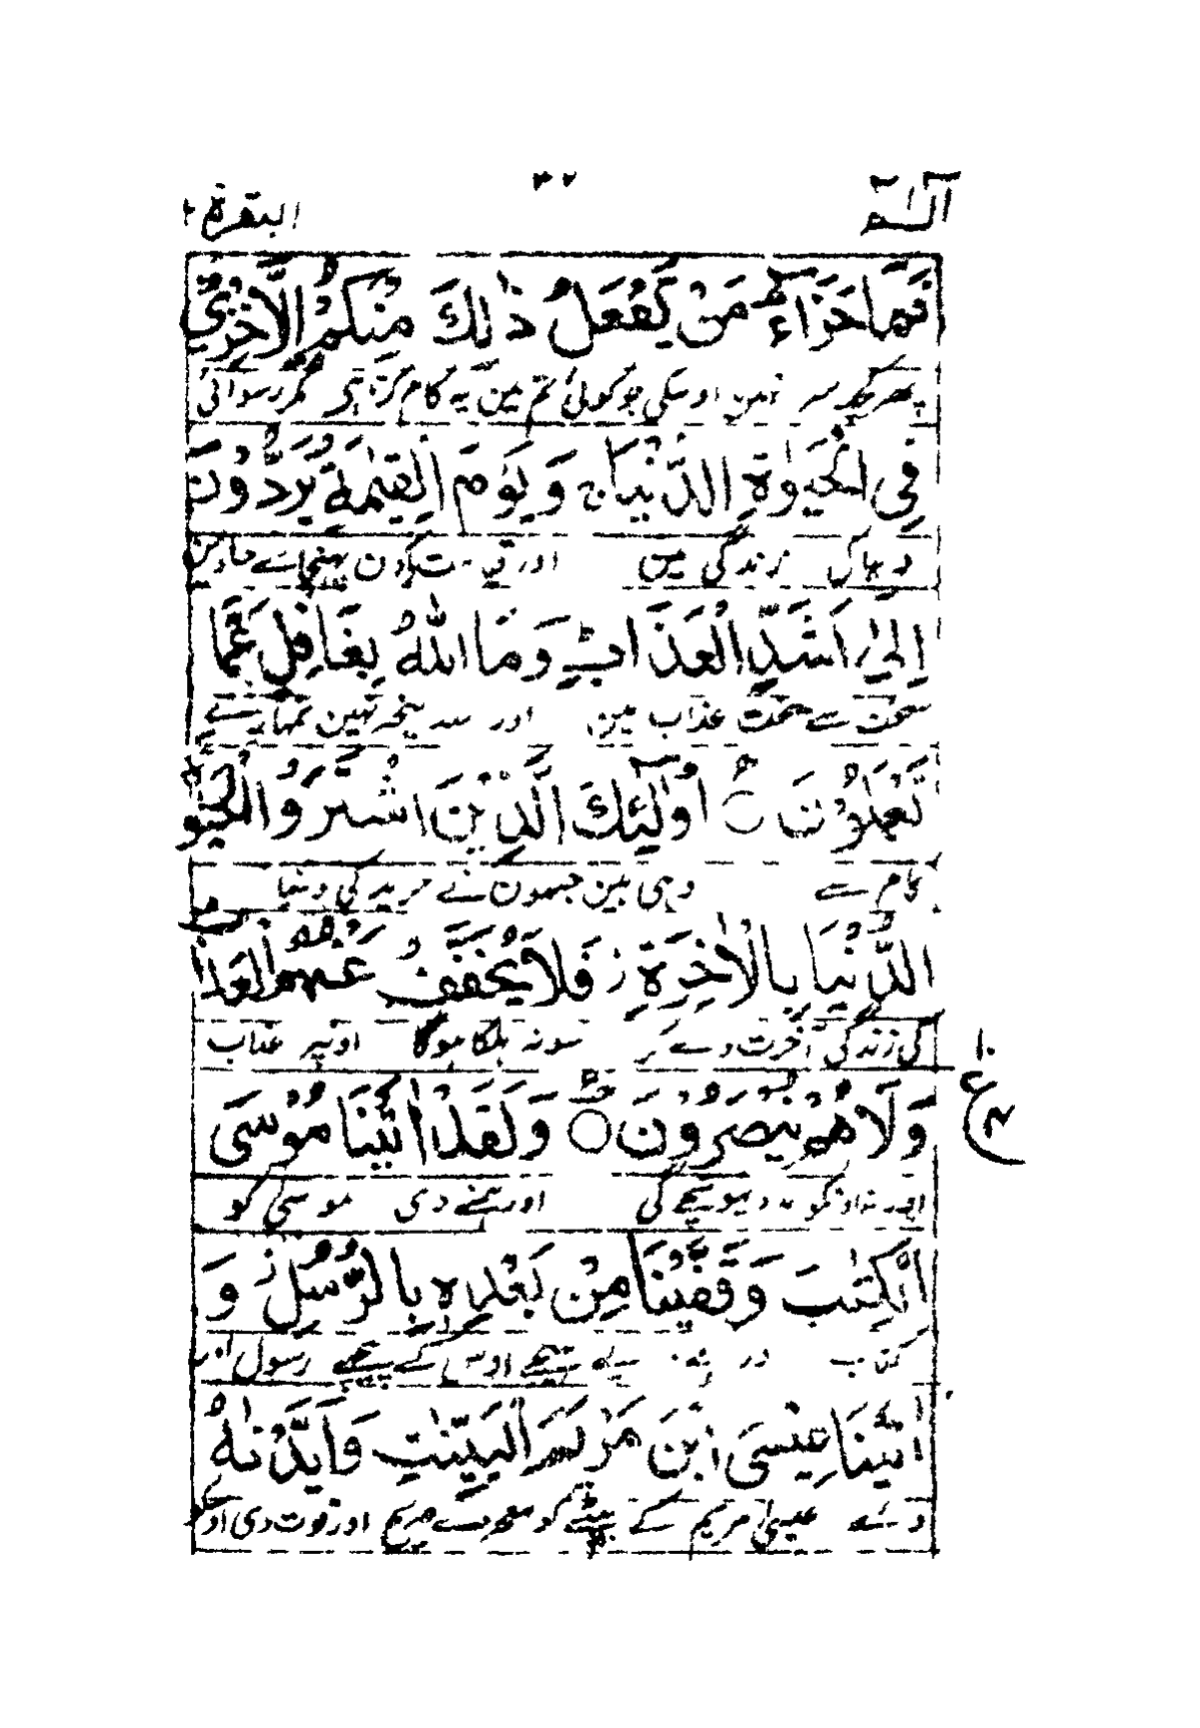 الٓمّٓ ٣٧ البقرة ٢
فَمَا جَزَآءُ مَنْ يَّفْعَلُ ذٰلِكَ مِنْكُمْ اِلَّا خِزْیٌ
پھر کچھ نہیں اوسکی جو کوئی تم مین یہ کام کرتا ہی مگر رسوائی
فِی الْحَیٰوةِ الدُّنْیَا ۚ وَ یَوْمَ الْقِیٰمَةِ یُرَدُّوْنَ
دنیا کی زندگی میں اور قیامت کے دن پہنچائے جاوین
اِلٰۤی اَشَدِّ الْعَذَابِ ؕ وَ مَا اللّٰهُ بِغَافِلٍ عَمَّا
سخت سے سخت عذاب مین اور اللہ بیخبر نہین تمہارے
تَعْمَلُوْنَ ○ اُولٰٓئِكَ الَّذِیْنَ اشْتَرَوُا الْحَیٰوةَ
کام سے وہی ہین جنہون نے خرید کی دنیا
الدُّنْیَا بِالْاٰخِرَةِ ؗ فَلَا یُخَفَّفُ عَنْهُمُ الْعَذَابُ
کی زندگی آخرت دے کر سو نہ ہلکا ہوگا اونپر عذاب
وَ لَا هُمْ یُنْصَرُوْنَ ○ وَ لَقَدْ اٰتَیْنَا مُوْسَی
اور نہ اونکو مدد پہونچے گی اور ہمنے دی موسیٰ کو
الْكِتٰبَ وَ قَفَّیْنَا مِنْۢ بَعْدِهٖ بِالرُّسُلِ ؗ وَ
کتاب اور پے بھیجے اوس کے پیچھے رسول اور
اٰتَیْنَا عِیْسَی ابْنَ مَرْیَمَ الْبَیِّنٰتِ وَ اَیَّدْنٰهُ
دئے عیسیٰ مریم کے بیٹے کو معجزے صریح اور قوت دی اوسکو
١٠
ع